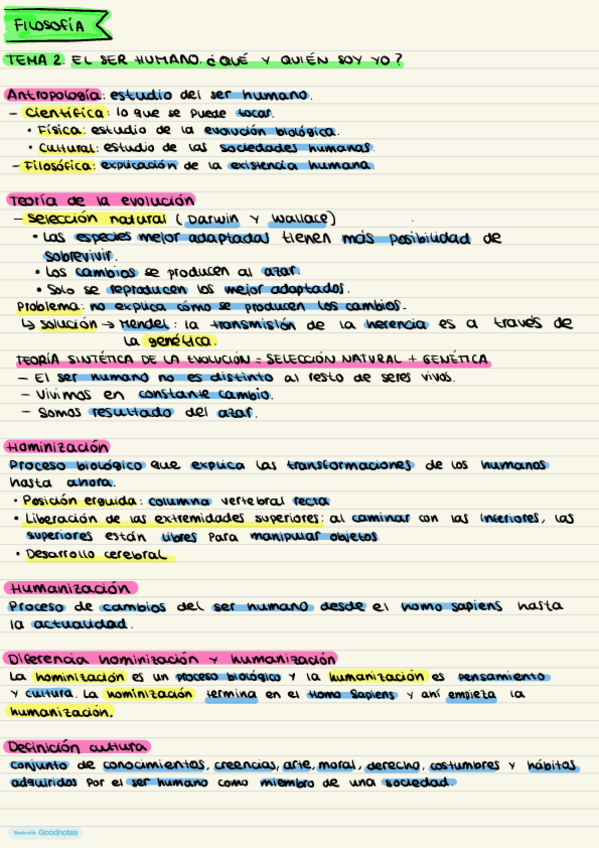 FILOSOFÍA
TEMA 2. EL SER HUMANO. ¿QUÉ Y QUIÉN SOY YO?
Antropología: estudio del ser humano.
- Científica: lo que se puede tocar.
• Física: estudio de la evolución biológica.
• Cultural: estudio de las sociedades humanas.
- Filosófica: explicación de la existencia humana.
Teoría de la evolución
- Selección natural (Darwin y Wallace)
• Las especies mejor adaptadas tienen más posibilidad de
sobrevivir.
• Los cambios se producen al azar.
• Solo se reproducen los mejor adaptados.
Problema: no explica cómo se producen los cambios.
↳ solución → Mendel: la transmisión de la herencia es a través de
la genética.
TEORÍA SINTÉTICA DE LA EVOLUCIÓN = SELECCIÓN NATURAL + GENÉTICA
- El ser humano no es distinto al resto de seres vivos.
- Vivimos en constante cambio.
- Somos resultado del azar.
Hominización
Proceso biológico que explica las transformaciones de los humanos
hasta ahora.
• Posición erguida: columna vertebral recta
• Liberación de las extremidades superiores: al caminar con las inferiores, las
superiores están libres para manipular objetos
• Desarrollo cerebral
Humanización
Proceso de cambios del ser humano desde el homo sapiens hasta
la actualidad.
Diferencia hominización y humanización
La hominización es un proceso biológico y la humanización es pensamiento
y cultura. La hominización termina en el Homo Sapiens y ahí empieza la
humanización.
Definición cultura
conjunto de conocimientos, creencias, arte, moral, derecho, costumbres y hábitos
adquiridos por el ser humano como miembro de una sociedad.
Made with Goodnotes